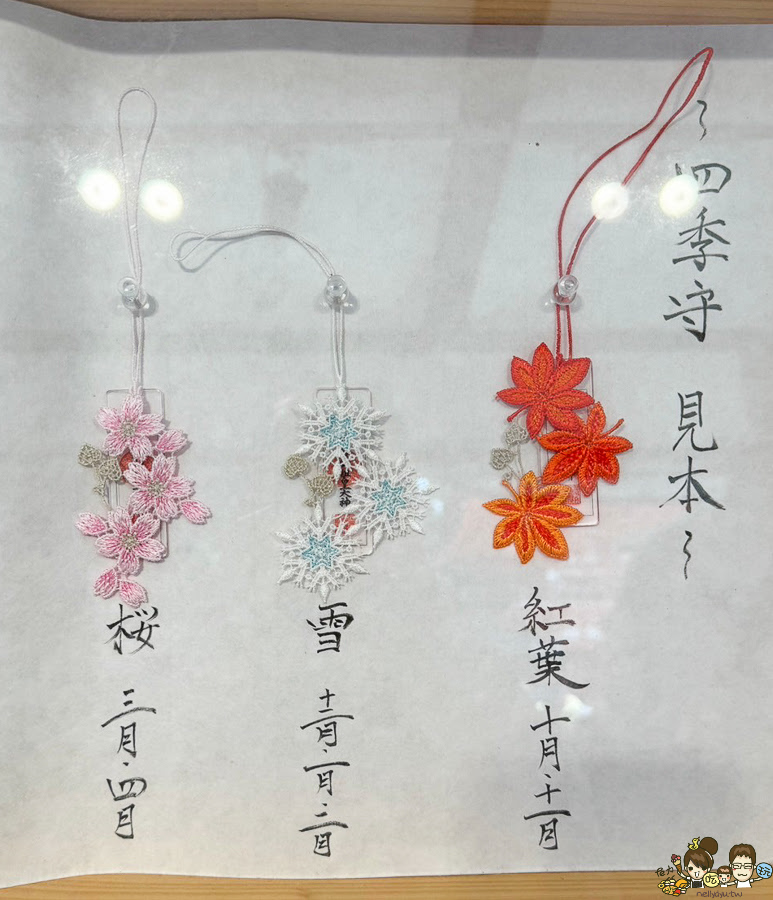 ～四季守 見本～
紅葉
十月・十一月
雪
十二月・一月・二月
桜
三月・四月
大神
吃
玩
nellydyu.tw